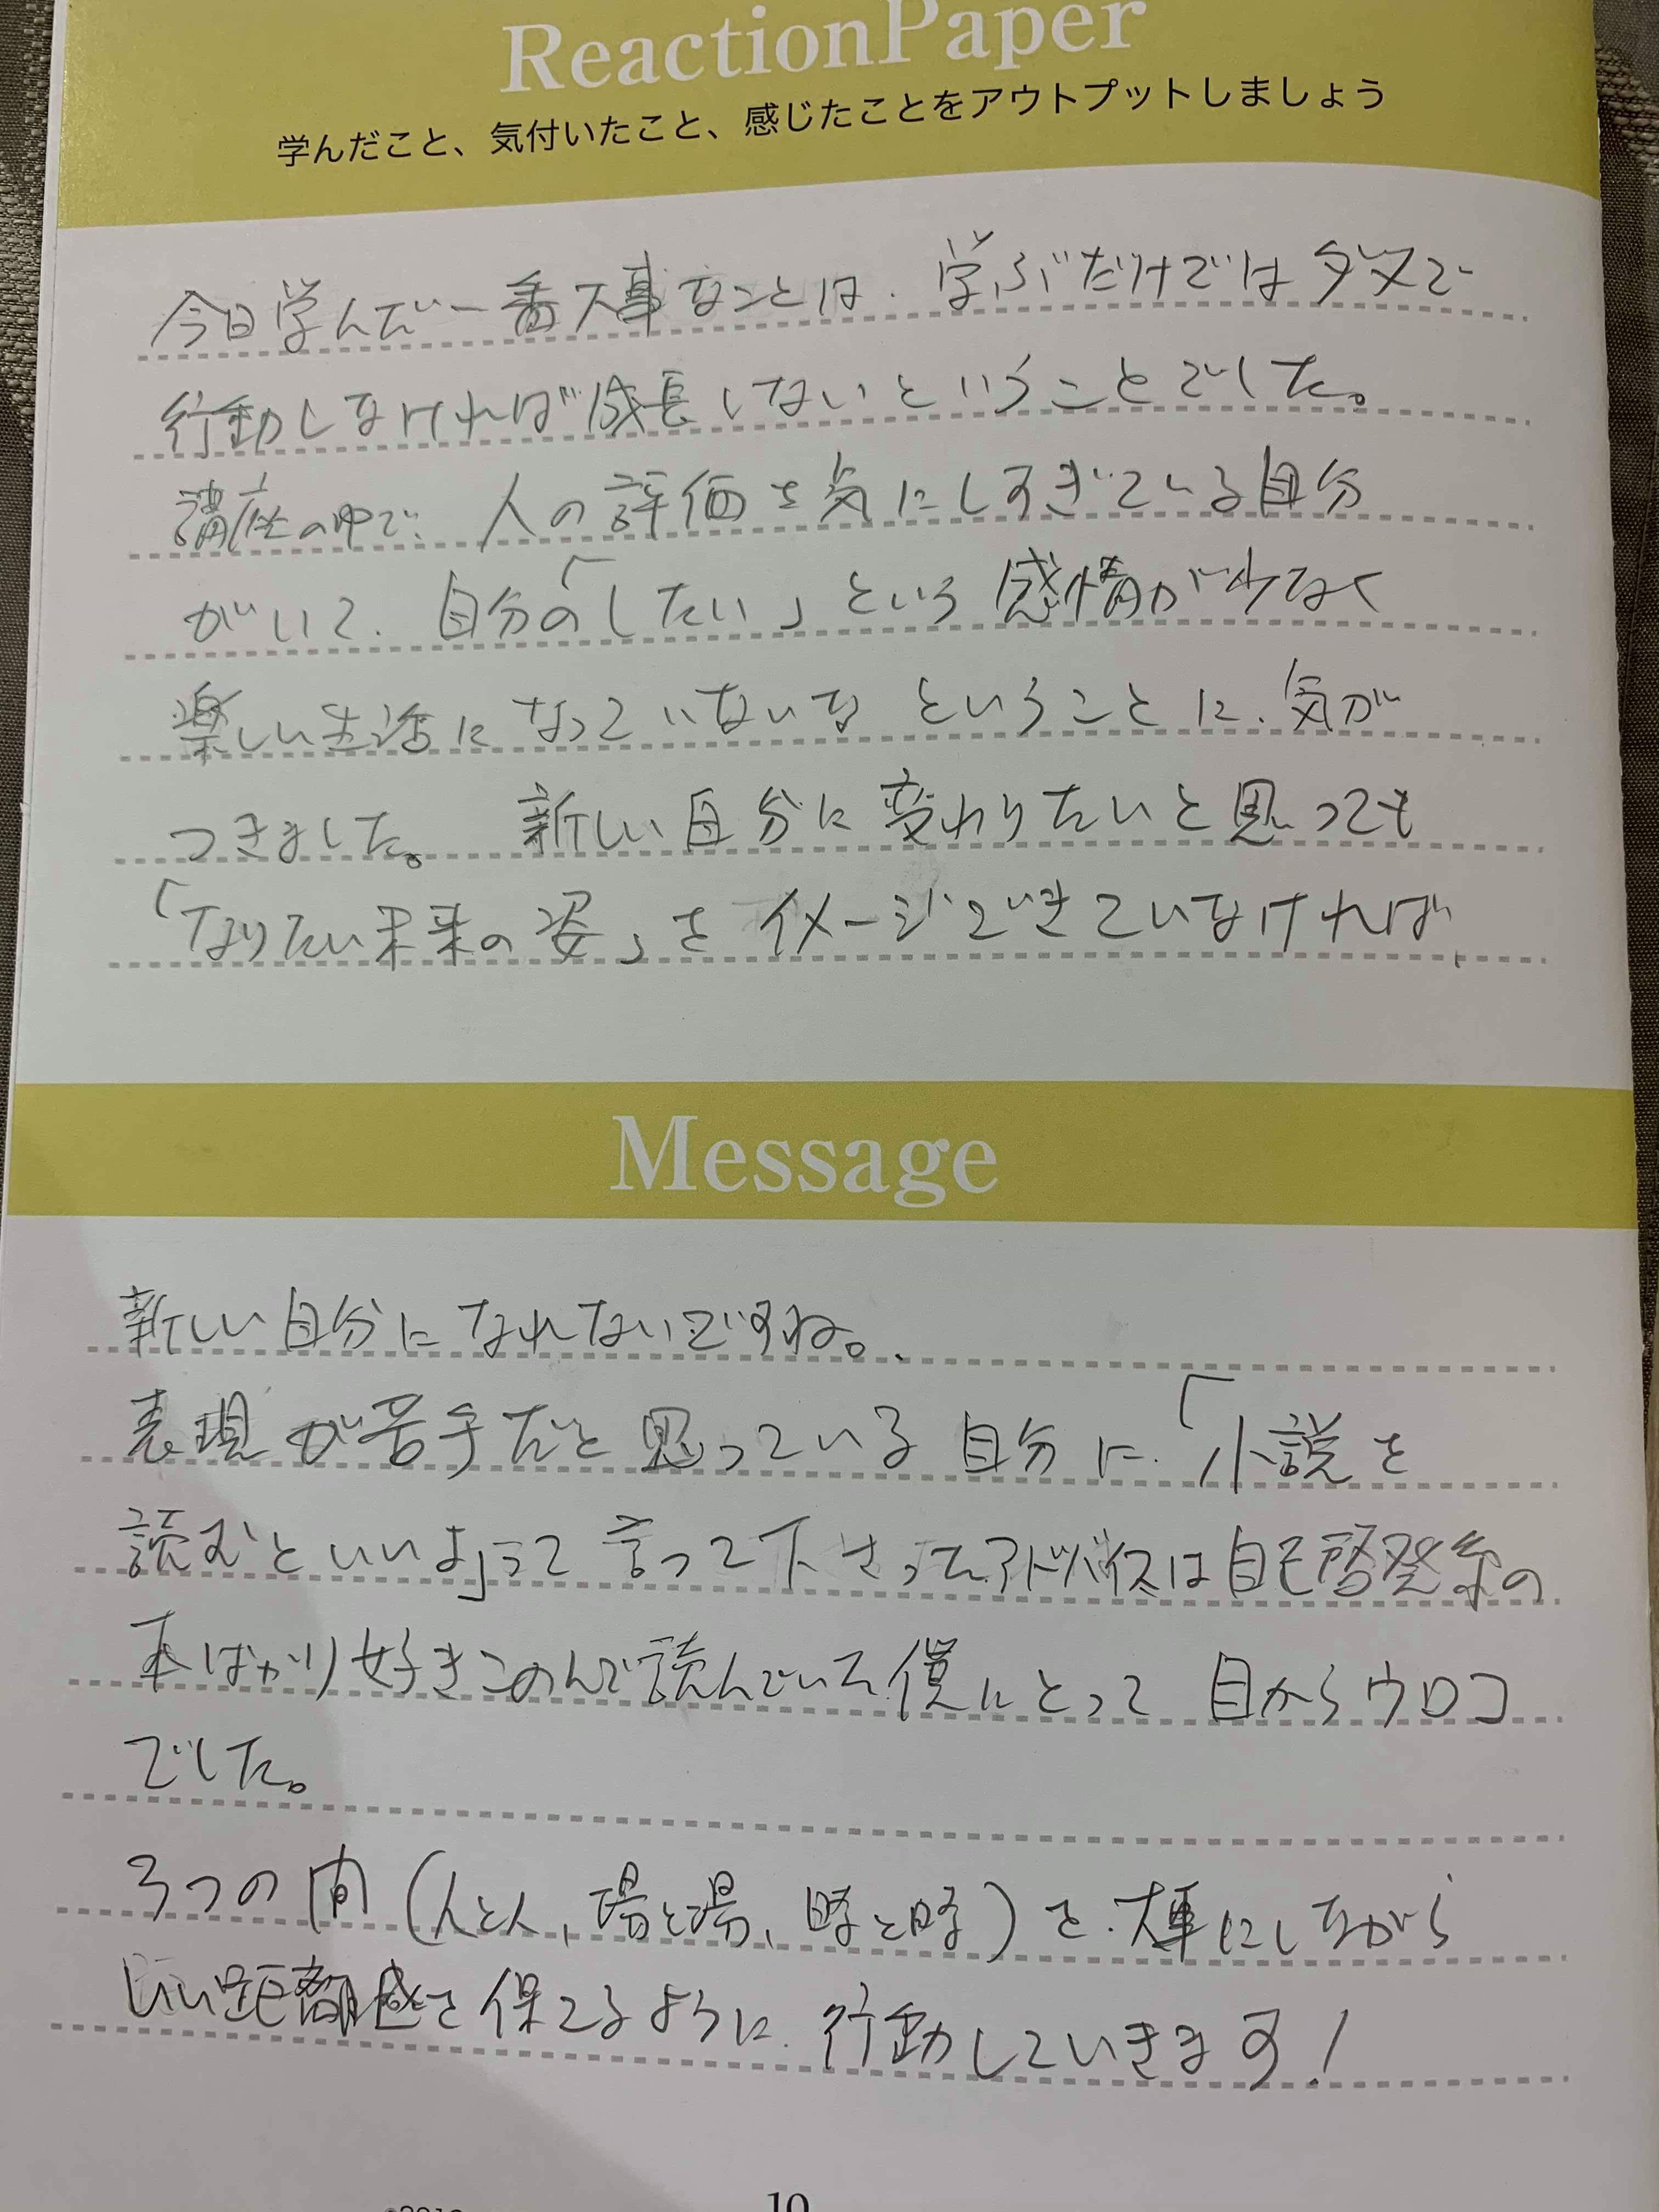 ReactionPaper
学んだこと、気付いたこと、感じたことをアウトプットしましょう
今日学んだ一番大事なことは、学ぶだけではダメで
行動しなければ成長しないということでした。
講座の中で、人の評価を気にしすぎている自分
がいて、自分の「したい」という感情が少なく
楽しい生活になっていないなということに、気が
つきました。新しい自分に変わりたいと思っても
「なりたい未来の姿」をイメージできていなければ、
Message
新しい自分になれないですね。
表現が苦手だと思っている自分に、「小説を
読むといいよ」って言って下さったアドバイスは自己啓発系の
本ばかり好きこのんで読んでいた僕にとって目からウロコ
でした。
3つの間(人と人、場と場、時と時)を大事にしながら
いい距離感を保てるように、行動していきます!
10